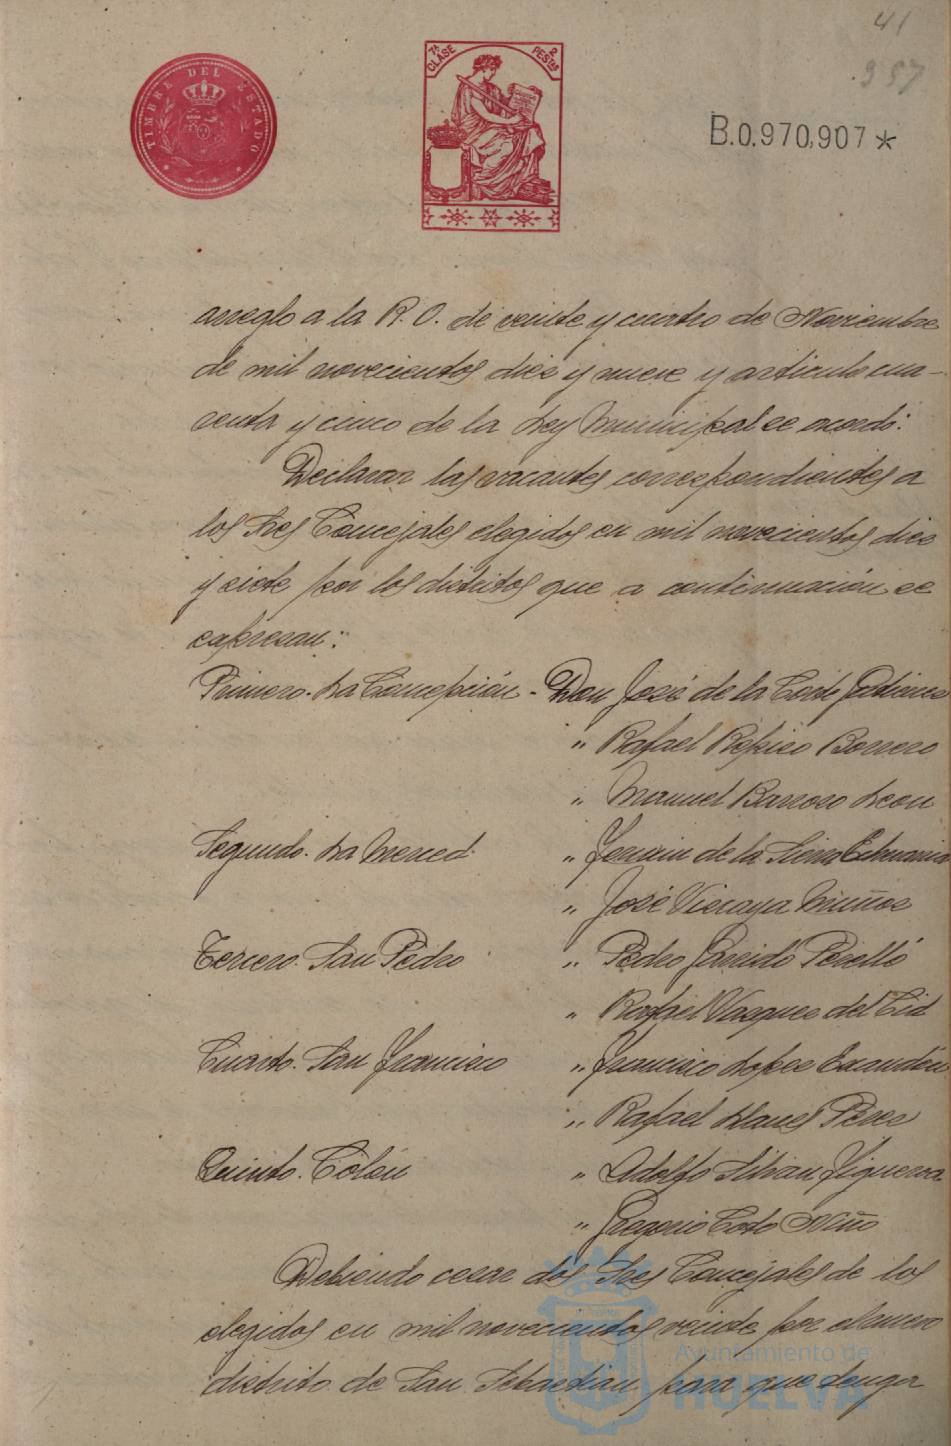 41
957
TIMBRE DEL ESTADO
7ª CLASE
2 PESTAS
B.0.970,907 *
arreglo a la R. O. de veinte y cuatro de Noviembre
de mil novecientos diez y nueve y articulo cua-
renta y cinco de la Ley Municipal se acordó:
Declarar las vacantes correspondientes a
los Sres Concejales elegidos en mil novecientos diez
y siete por los distritos que a continuación se
expresan:
Primero. La Concepción - Don José de la Corte Gutierrez
" Rafael Repiso Borrero
" Manuel Barroso Leon
Segundo. La Merced " Fermin de la Sierra
" José Vizcaya Muñoz
Tercero. San Pedro " Pedro Garrido Perelló
" Rafael Vazquez del Cid
Cuarto. San Francisco " Francisco Lopez Escandón
" Rafael Llanes Perez
Quinto. Colón " Adolfo Silvan Figueroa
" Gregorio Niño
Debiendo cesar dos Sres Concejales de los
elegidos en mil novecientos veinte por el nuevo
distrito de San Sebastian para que tenga
Ayuntamiento de
HUELVA